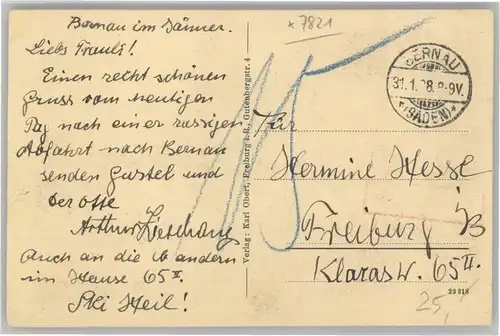 * 7821
Bernau im Jänner.
Liebs Trauli!
Einen recht schönen
Gruss vom heutigen
Tag nach einer rassigen
Abfahrt nach Bernau
senden Gustel und
der Otto
Arthur
Auch an die andern
im Hause 65 II.
Ski Heil!
Verlag: Karl Obert, Freiburg i. B., Gutenbergstr. 4
BERNAU
31.1. 8-9V.
*(BADEN)*
Frl
Hermine Hesse
Freiburg i/B
Klarastr. 65 II.
23 918
25,-